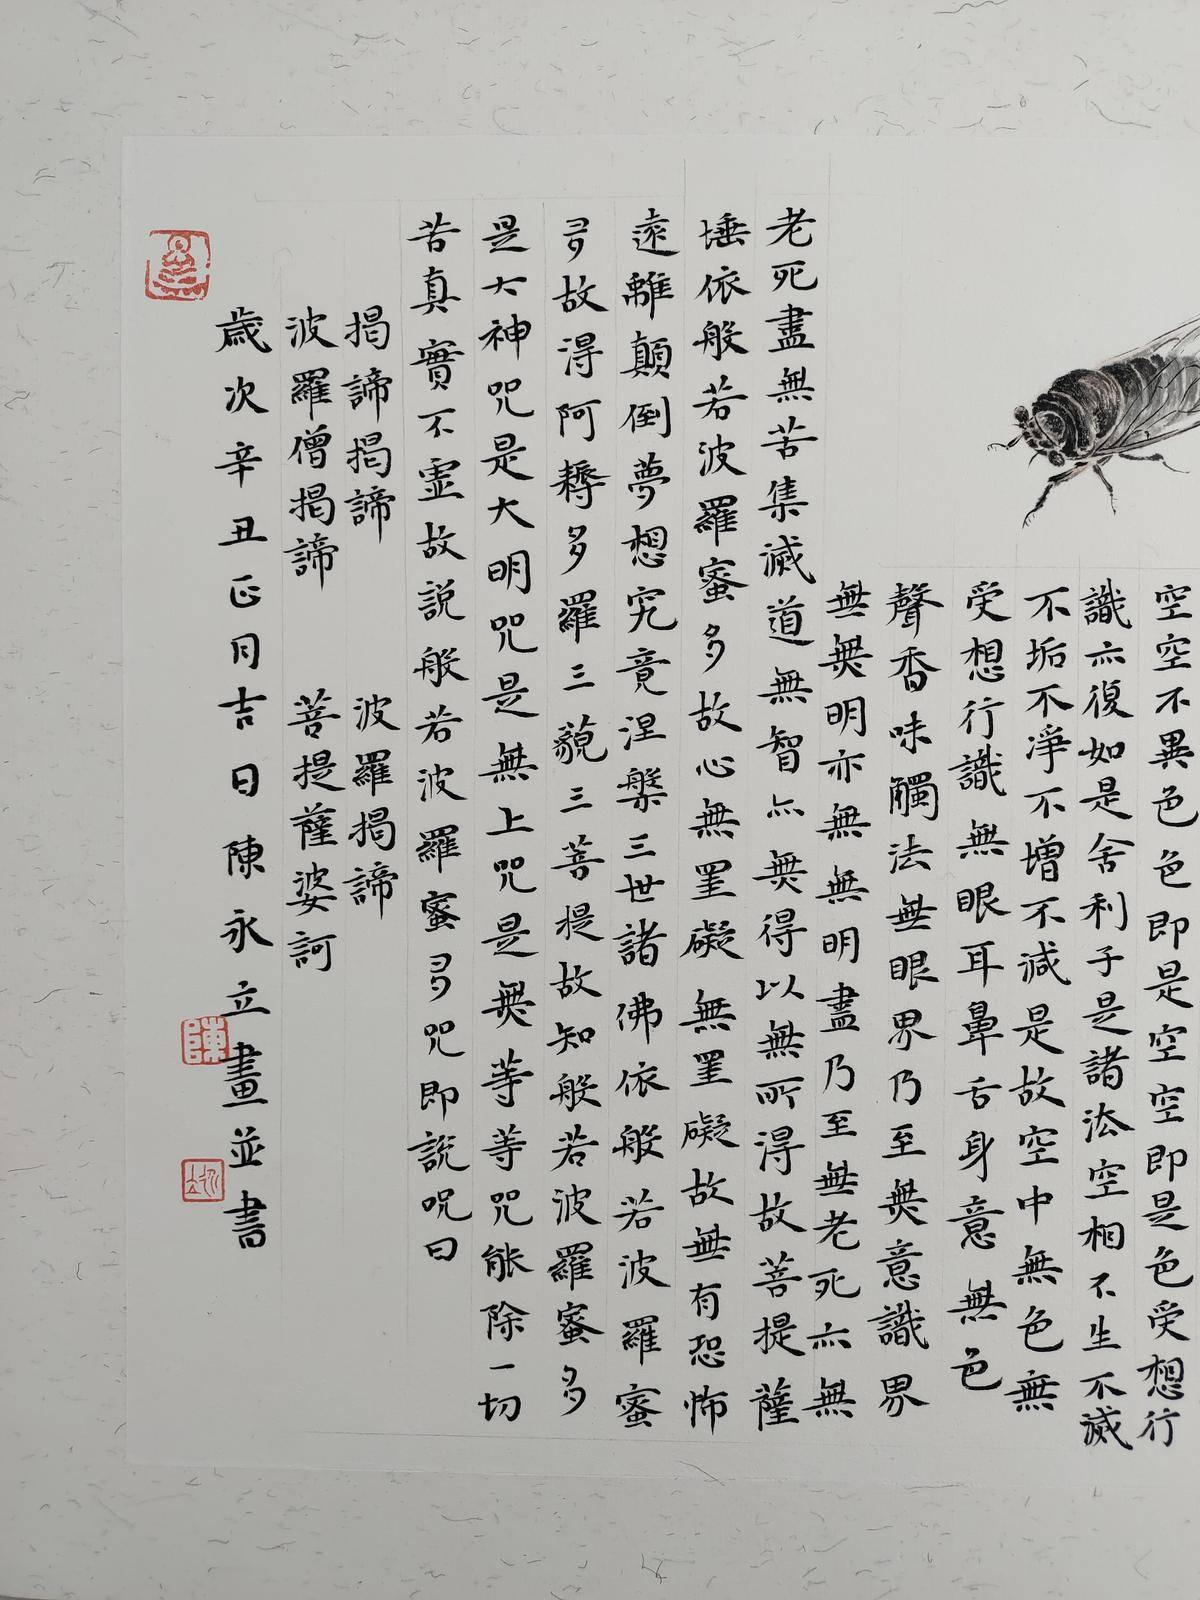 空空不異色色即是空空即是色受想行
識亦復如是舍利子是諸法空相不生不滅
不垢不淨不增不減是故空中無色無
受想行識無眼耳鼻舌身意無色
聲香味觸法無眼界乃至無意識界
無無明亦無無明盡乃至無老死亦無
老死盡無苦集滅道無智亦無得以無所得故菩提薩
埵依般若波羅蜜多故心無罣礙無罣礙故無有恐怖
遠離顛倒夢想究竟涅槃三世諸佛依般若波羅蜜
多故得阿耨多羅三藐三菩提故知般若波羅蜜多
是大神咒是大明咒是無上咒是無等等咒能除一切
苦真實不虛故說般若波羅蜜多咒即說咒曰
揭諦揭諦 波羅揭諦
波羅僧揭諦 菩提薩婆訶
歲次辛丑正月吉日陳永立畫並書
陳